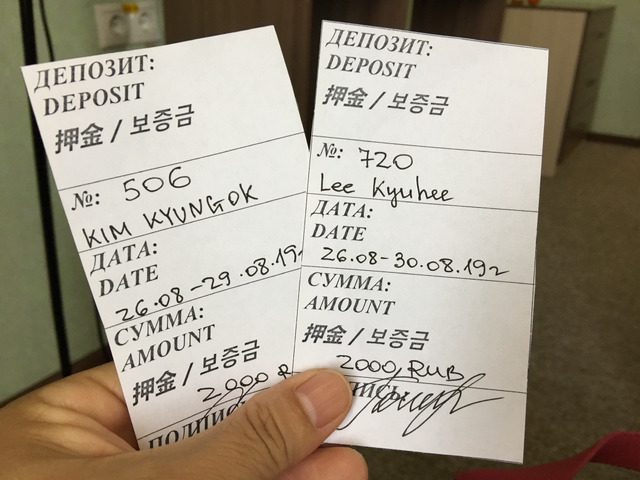 ДЕПОЗИТ:
DEPOSIT
押金 / 보증금
№: 506
KIM KYUNGOK
ДАТА:
DATE
26.08-29.08.19г
СУММА:
AMOUNT
押金 / 보증금
2000 R
ДЕПОЗИТ:
DEPOSIT
押金 / 보증금
№: 720
Lee Kyuhee
ДАТА:
DATE
26.08-30.08.19г
СУММА:
AMOUNT
押金 / 보증금
2000 RUB